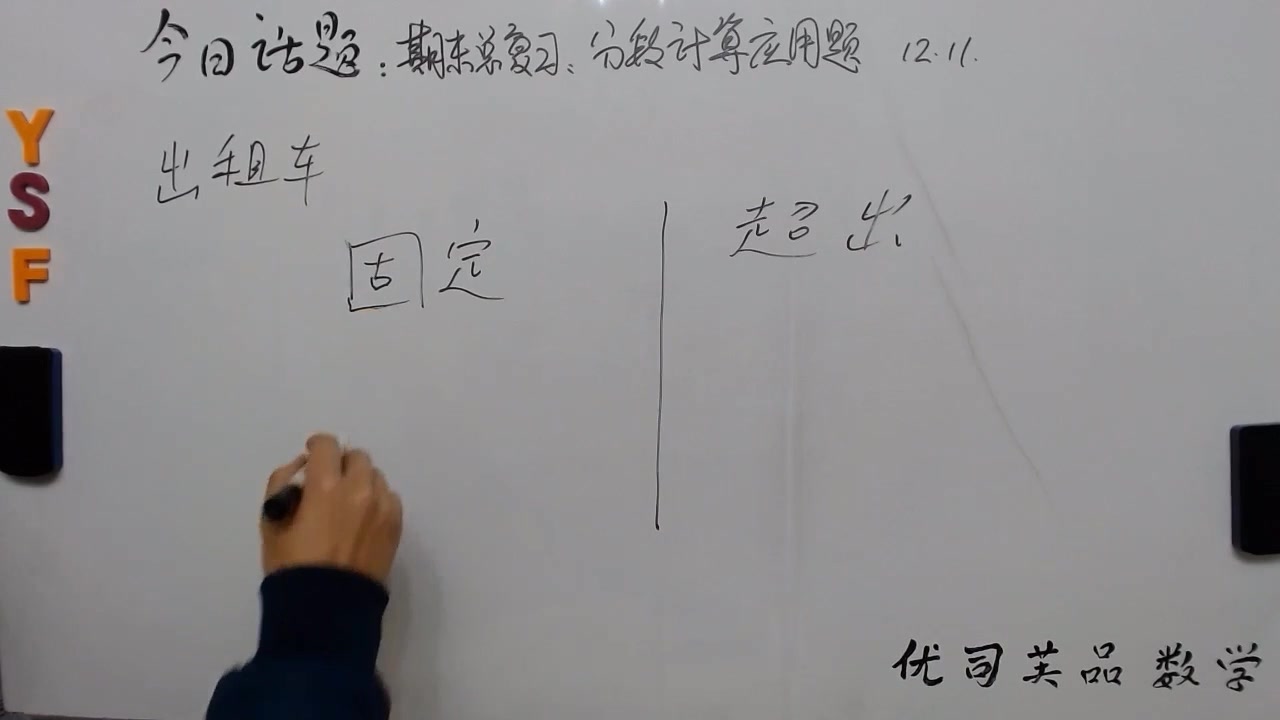 今日话题：期末总复习、分段计算应用题 12.11.
Y
S
F
出租车
固定
超出
优司芙品数学